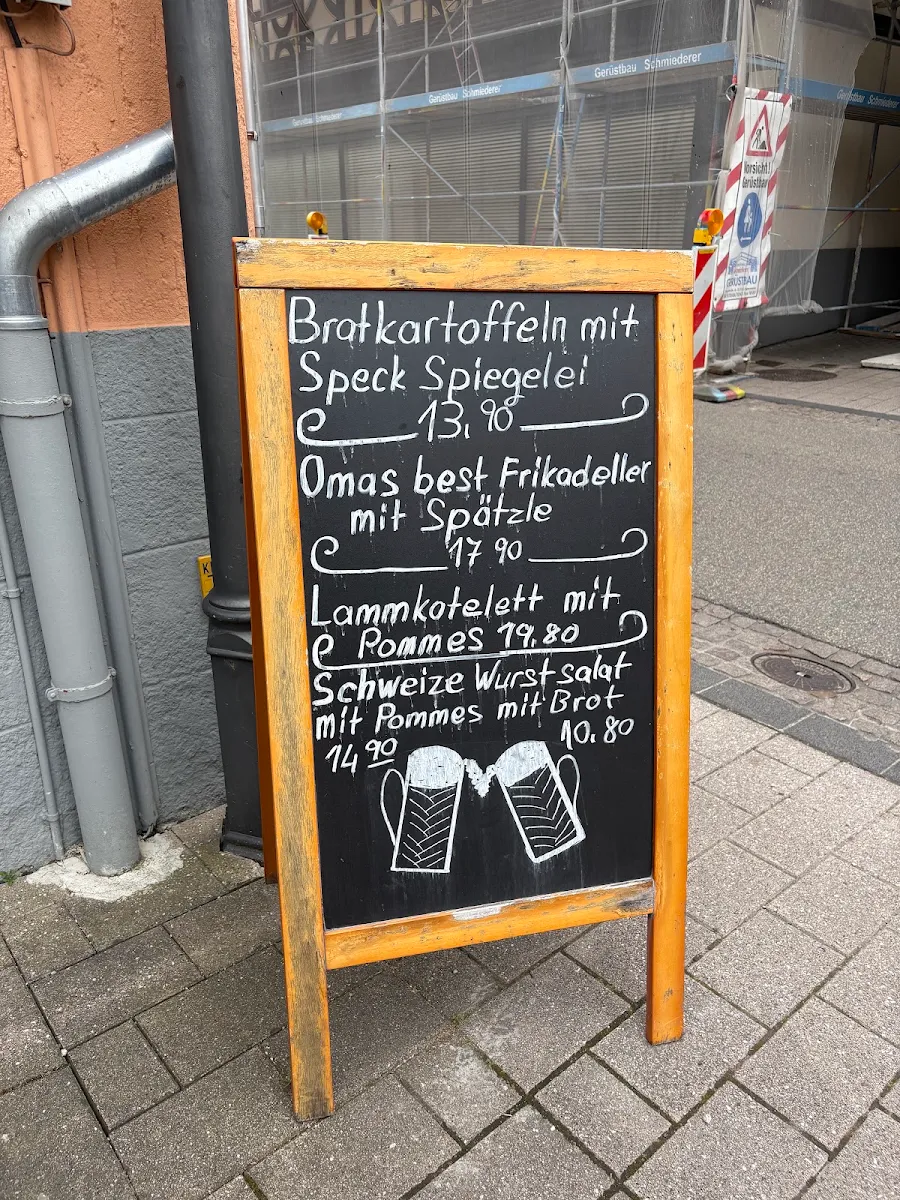 Gerüstbau Schmiederer
Gerüstbau Schmiederer
Vorsicht!
Gerüstbau
GERÜSTBAU
Bratkartoffeln mit
Speck Spiegelei
13,90
Omas best Frikadeller
mit Spätzle
17 90
Lammkotelett mit
Pommes 19.80
Schweize Wurstsalat
mit Pommes mit Brot
14 90 10.80